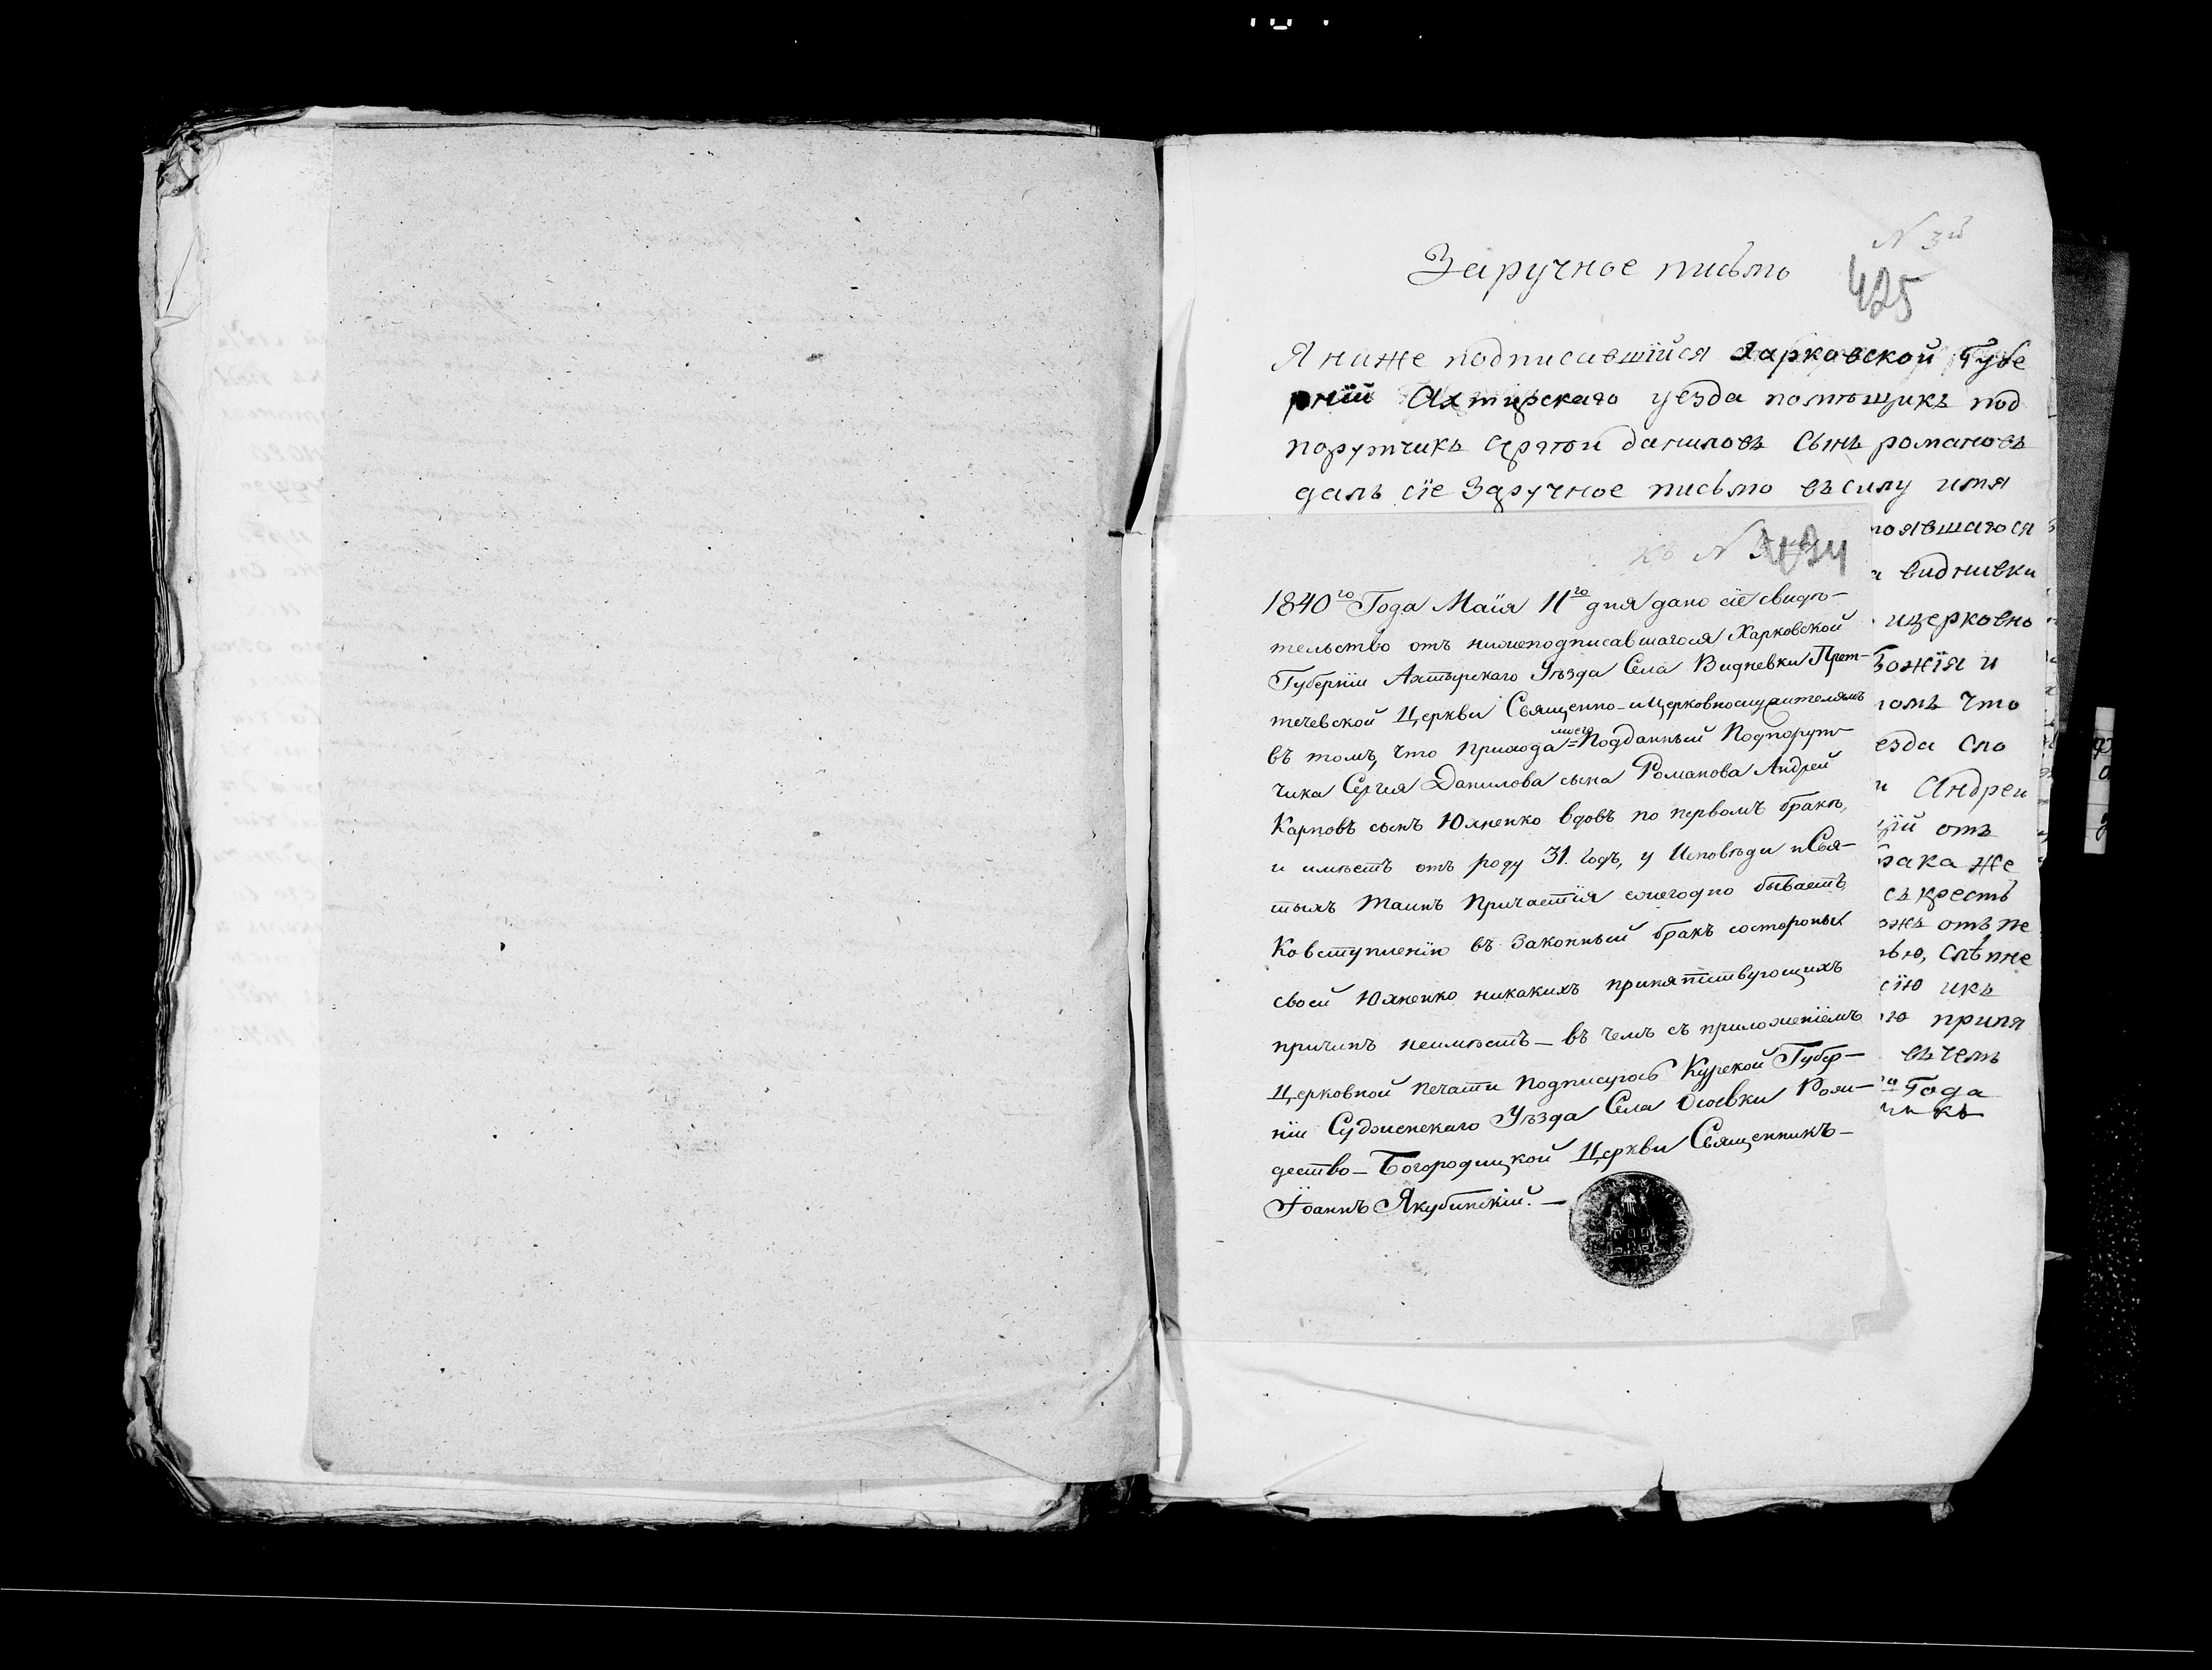 N 3й
Заручное письмо
425
Я ниже подписавшїйся Харковской Губе
рнїй Ахтирскаго уезда помѣщикъ под
порутчикъ Даниловъ Сынъ романовъ
далъ сїе Заручное письмо въ силу имя
явшагося
видневки
ицерковно
Божїя и
томъ Что
езда сло
Андреи
отъ
брака же
съ крест
отъ пе
слѣпне
сїю икъ
препя
въ чемъ
Года
къ N
1840го Года Маїя 11го дня дано сїе свидѣ-
тельство отъ нижеподписавшагося Харковской
Губернїи Ахтырскаго Уѣзда Села Видневки Пред-
течевской Церкви Священно-ицерковнослужителямъ
въ томъ, что прихода моего Подданный Подпорут-
чика Сергия Данилова сына Романова Андрей
Карповъ сынъ Юхненко вдовъ по первомъ бракѣ,
и имѣетъ отъ роду 31. годъ, у Исповѣди иСвя-
тыхъ Таинъ Причастїя ежегодно бываетъ
Ковступленїю въ Законный бракъ состороны
своей Юхненко никакихъ припятствующихъ
причинъ неимѣетъ — въ чемъ съ приложенїемъ
Церковной печати подписуюсь Курской Губер-
нїи Суджанскаго Уѣзда Села Осоевки Рож-
дество-Богородицкой Церкви Священникъ-
Їоаннъ Якубинскїй. —